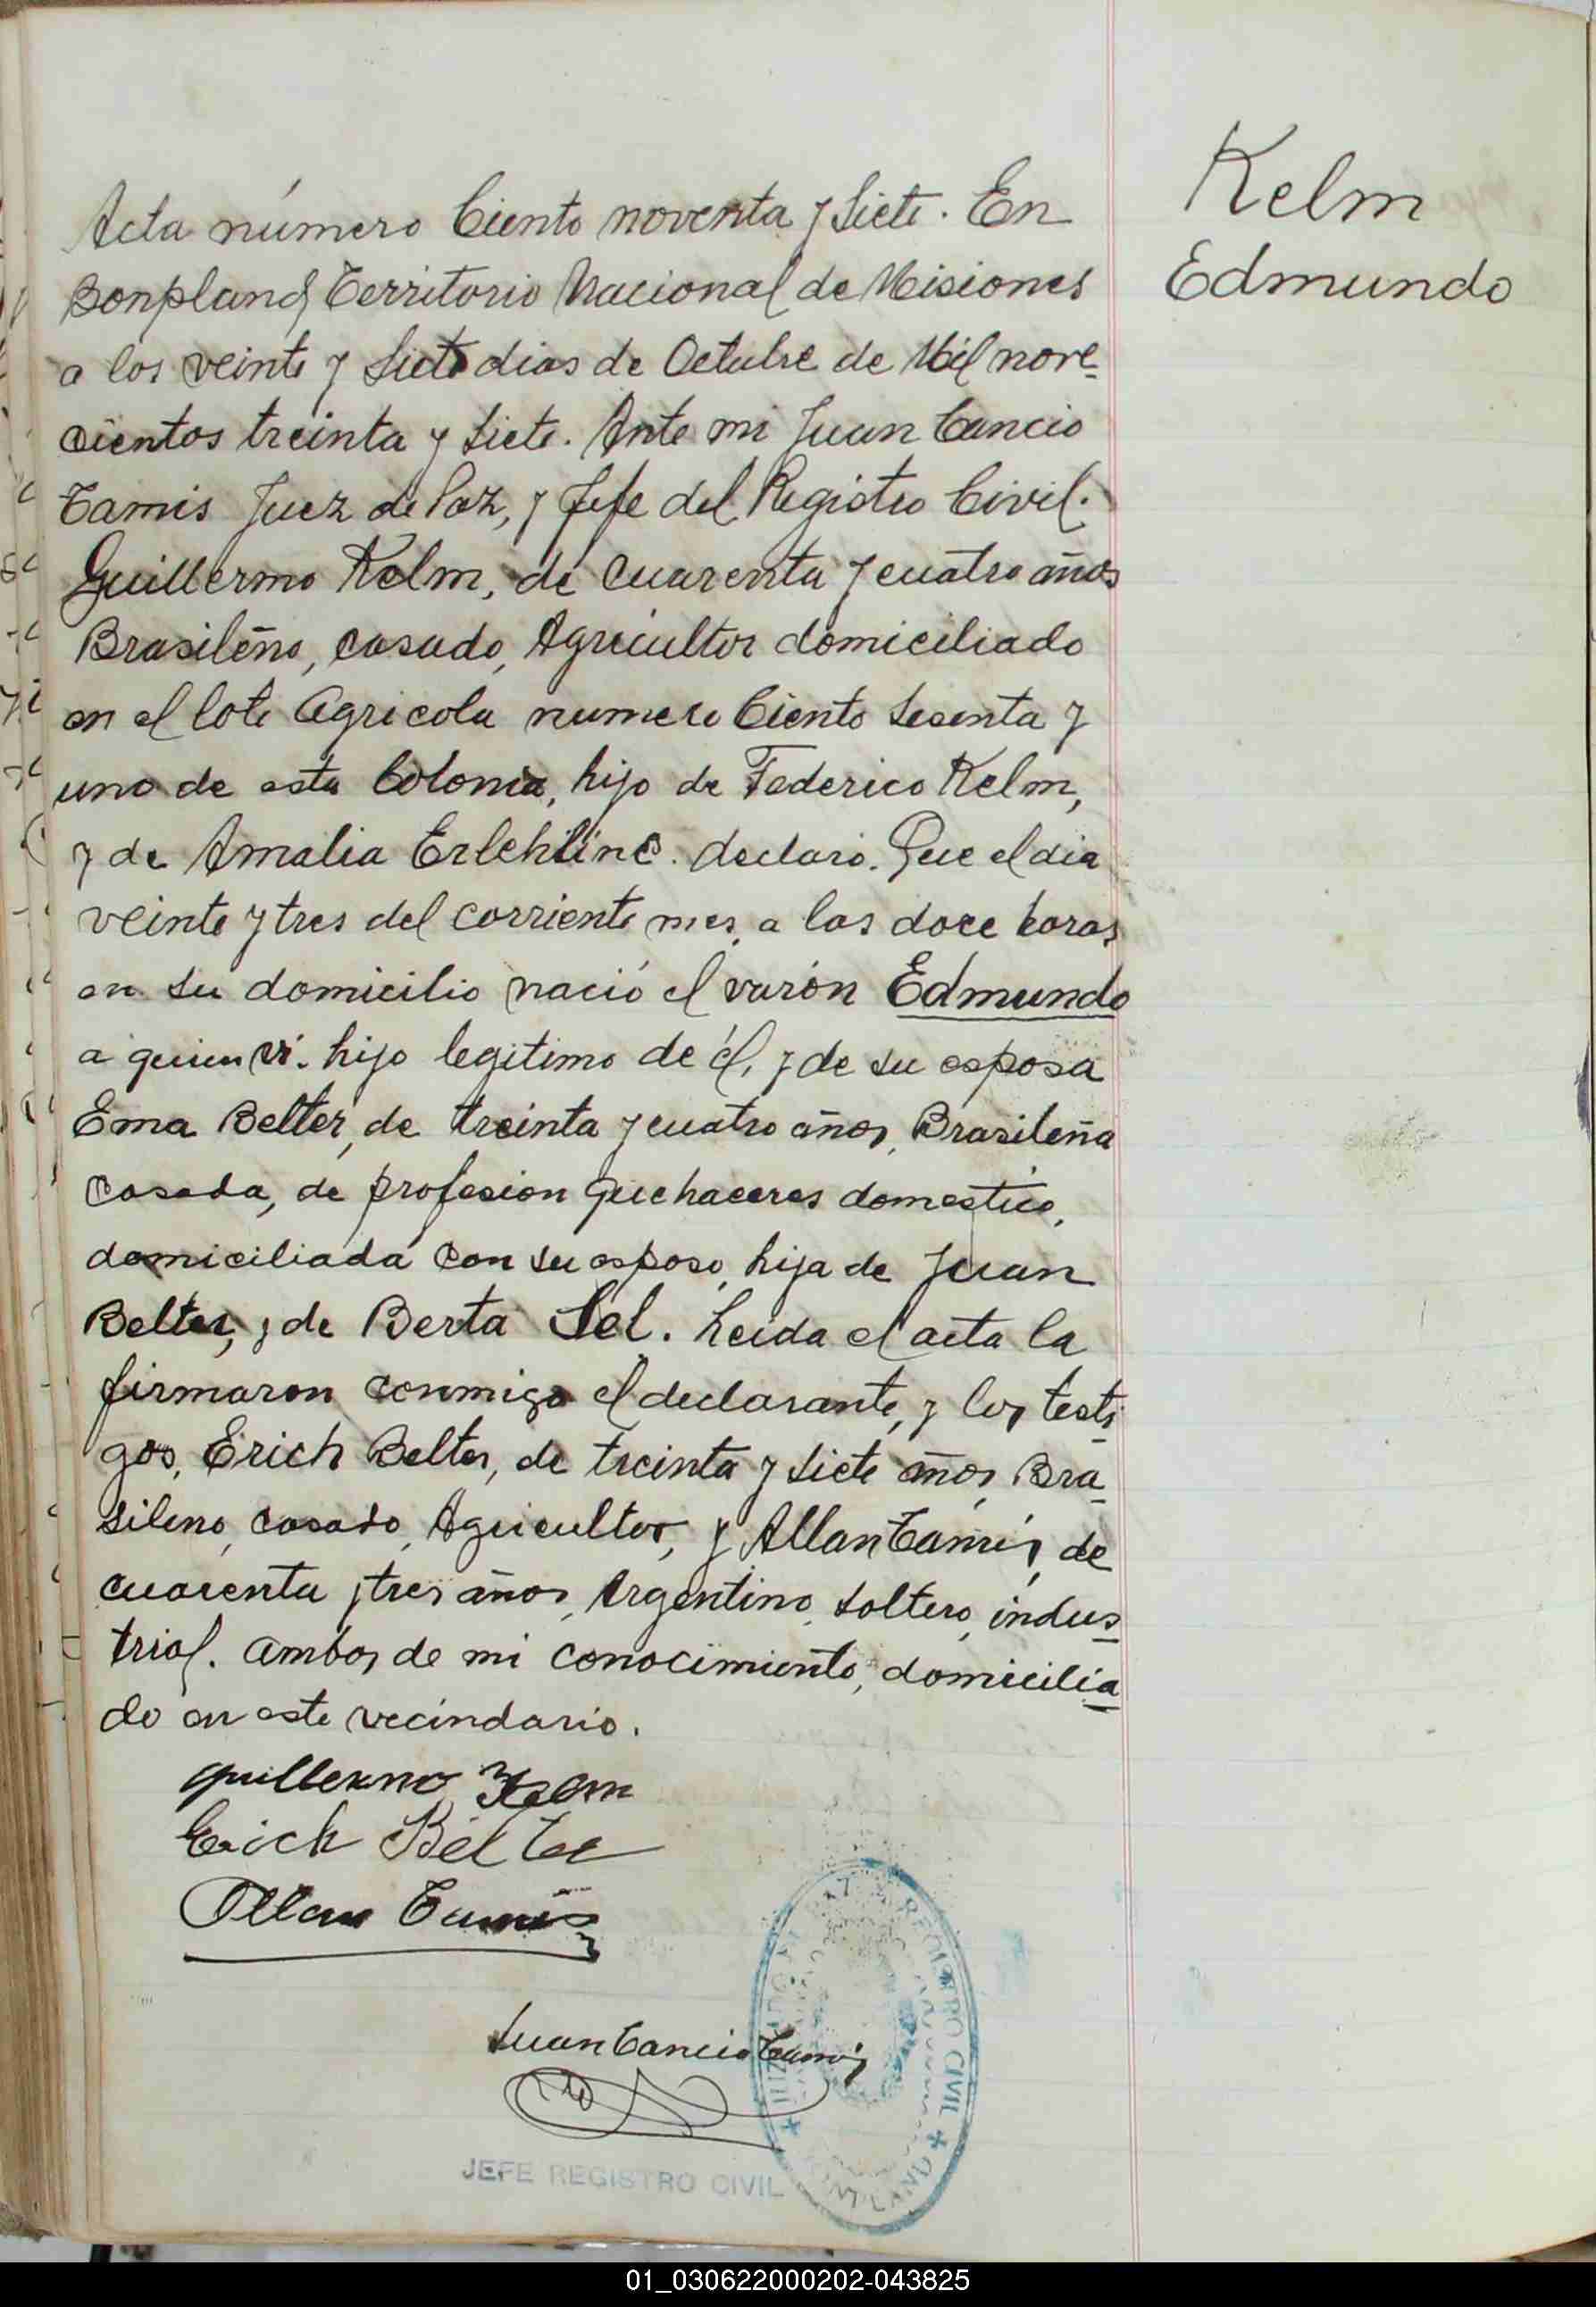 Kelm
Edmundo
Acta número Ciento noventa y Siete. En
Bonpland, Territorio Nacional de Misiones
a los veinte y Siete dias de Octubre de Mil nove-
cientos treinta y Siete. Ante mi Juan Cancio
Tamis Juez de Paz, y Jefe del Registro Civil.
Guillermo Kelm, de cuarenta y cuatro años
Brasileño, casado, Agricultor domiciliado
en el lote Agricola numero Ciento Sesenta y
uno de esta Colonia, hijo de Federico Kelm,
y de Amalia declaró. Que el dia
veinte y tres del corriente mes, a las doce horas
en su domicilio nació el varón Edmundo
a quien vi. hijo legitimo de él, y de su esposa
Ema Belter, de treinta y cuatro años, Brasileña
Casada, de profesion quehaceres domestico,
domiciliada con su esposo, hija de Juan
Belter, y de Berta Sel. Leida el acta la
firmaron conmigo el declarante, y los testi-
gos, Erich Belter, de treinta y siete años, Bra-
sileno, casado, Agricultor, y Allan Tamis, de
cuarenta y tres años, Argentino, soltero, indus-
trial. ambos de mi conocimiento, domicilia-
do en este vecindario.
Guillermo Kelm
Erich Belter
Allan Tamis
Juan Cancio Tamis
JEFE REGISTRO CIVIL
JUZGADO DE PAZ Y REGISTRO CIVIL
BONPLAND
01_030622000202-043825